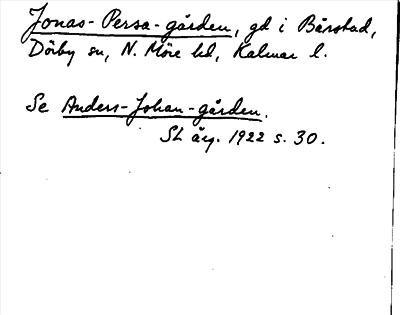 Jonas-Persa-gården, gd i Bårstad,
Dörby sn, N. Möre hd, Kalmar l.
Se Anders-Johan-gården.
SL årg. 1922 s. 30.